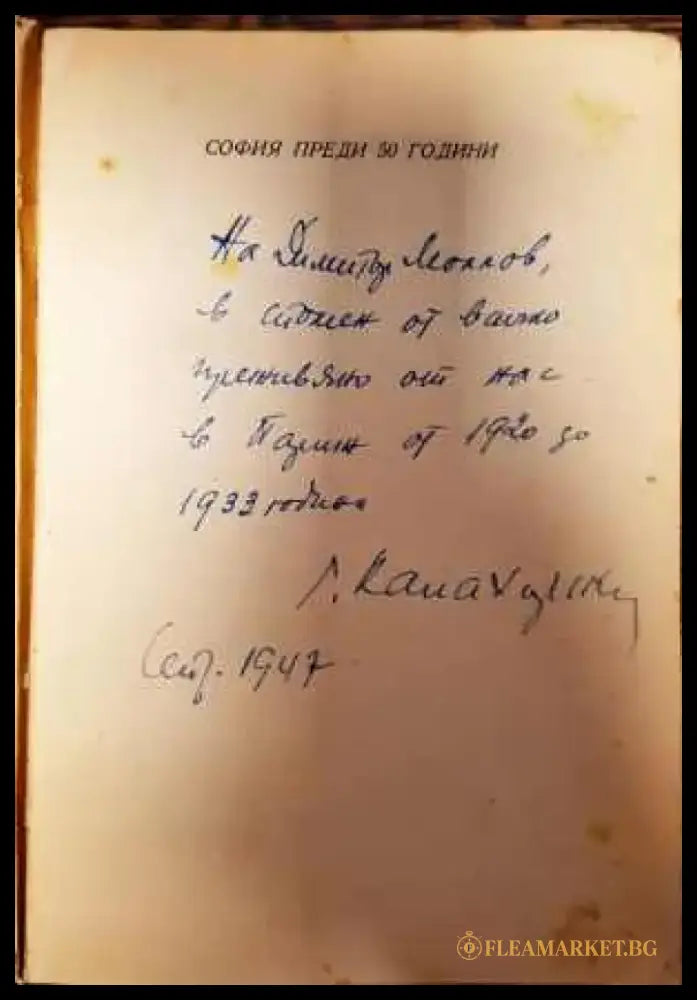 СОФИЯ ПРЕДИ 50 ГОДИНИ
На Димитър
в спомен от
преживяно от нас
в Париж от 1920 до
1933 година
Г. Каназирски
Септ. 1947
FLEAMARKET.BG